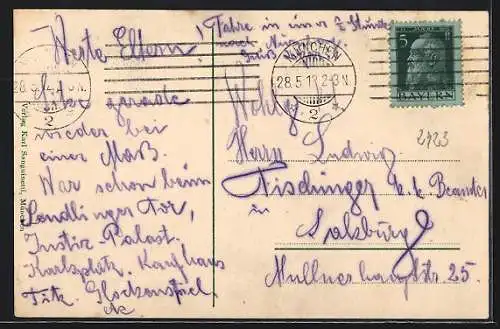 Fahre in einer ½ Stunde
nach Nürn
Gruß
Werte Eltern!
Sitze gerade
wieder bei
einer Maß.
War schon beim
Sendlinger Tor,
Justiz-Palast.
Karlsplatz. Kaufhaus
Tietz. Glockenspiel
etc
Verlag Karl Sanguinetti, München
MÜNCHEN
28.5.13 2-3N.
2
5
BAYERN
2423
Wohlg.
Herrn Ludwig
Fischinger k.k. Beamter
in
Salzburg
Müllnerhauptstr. 25.